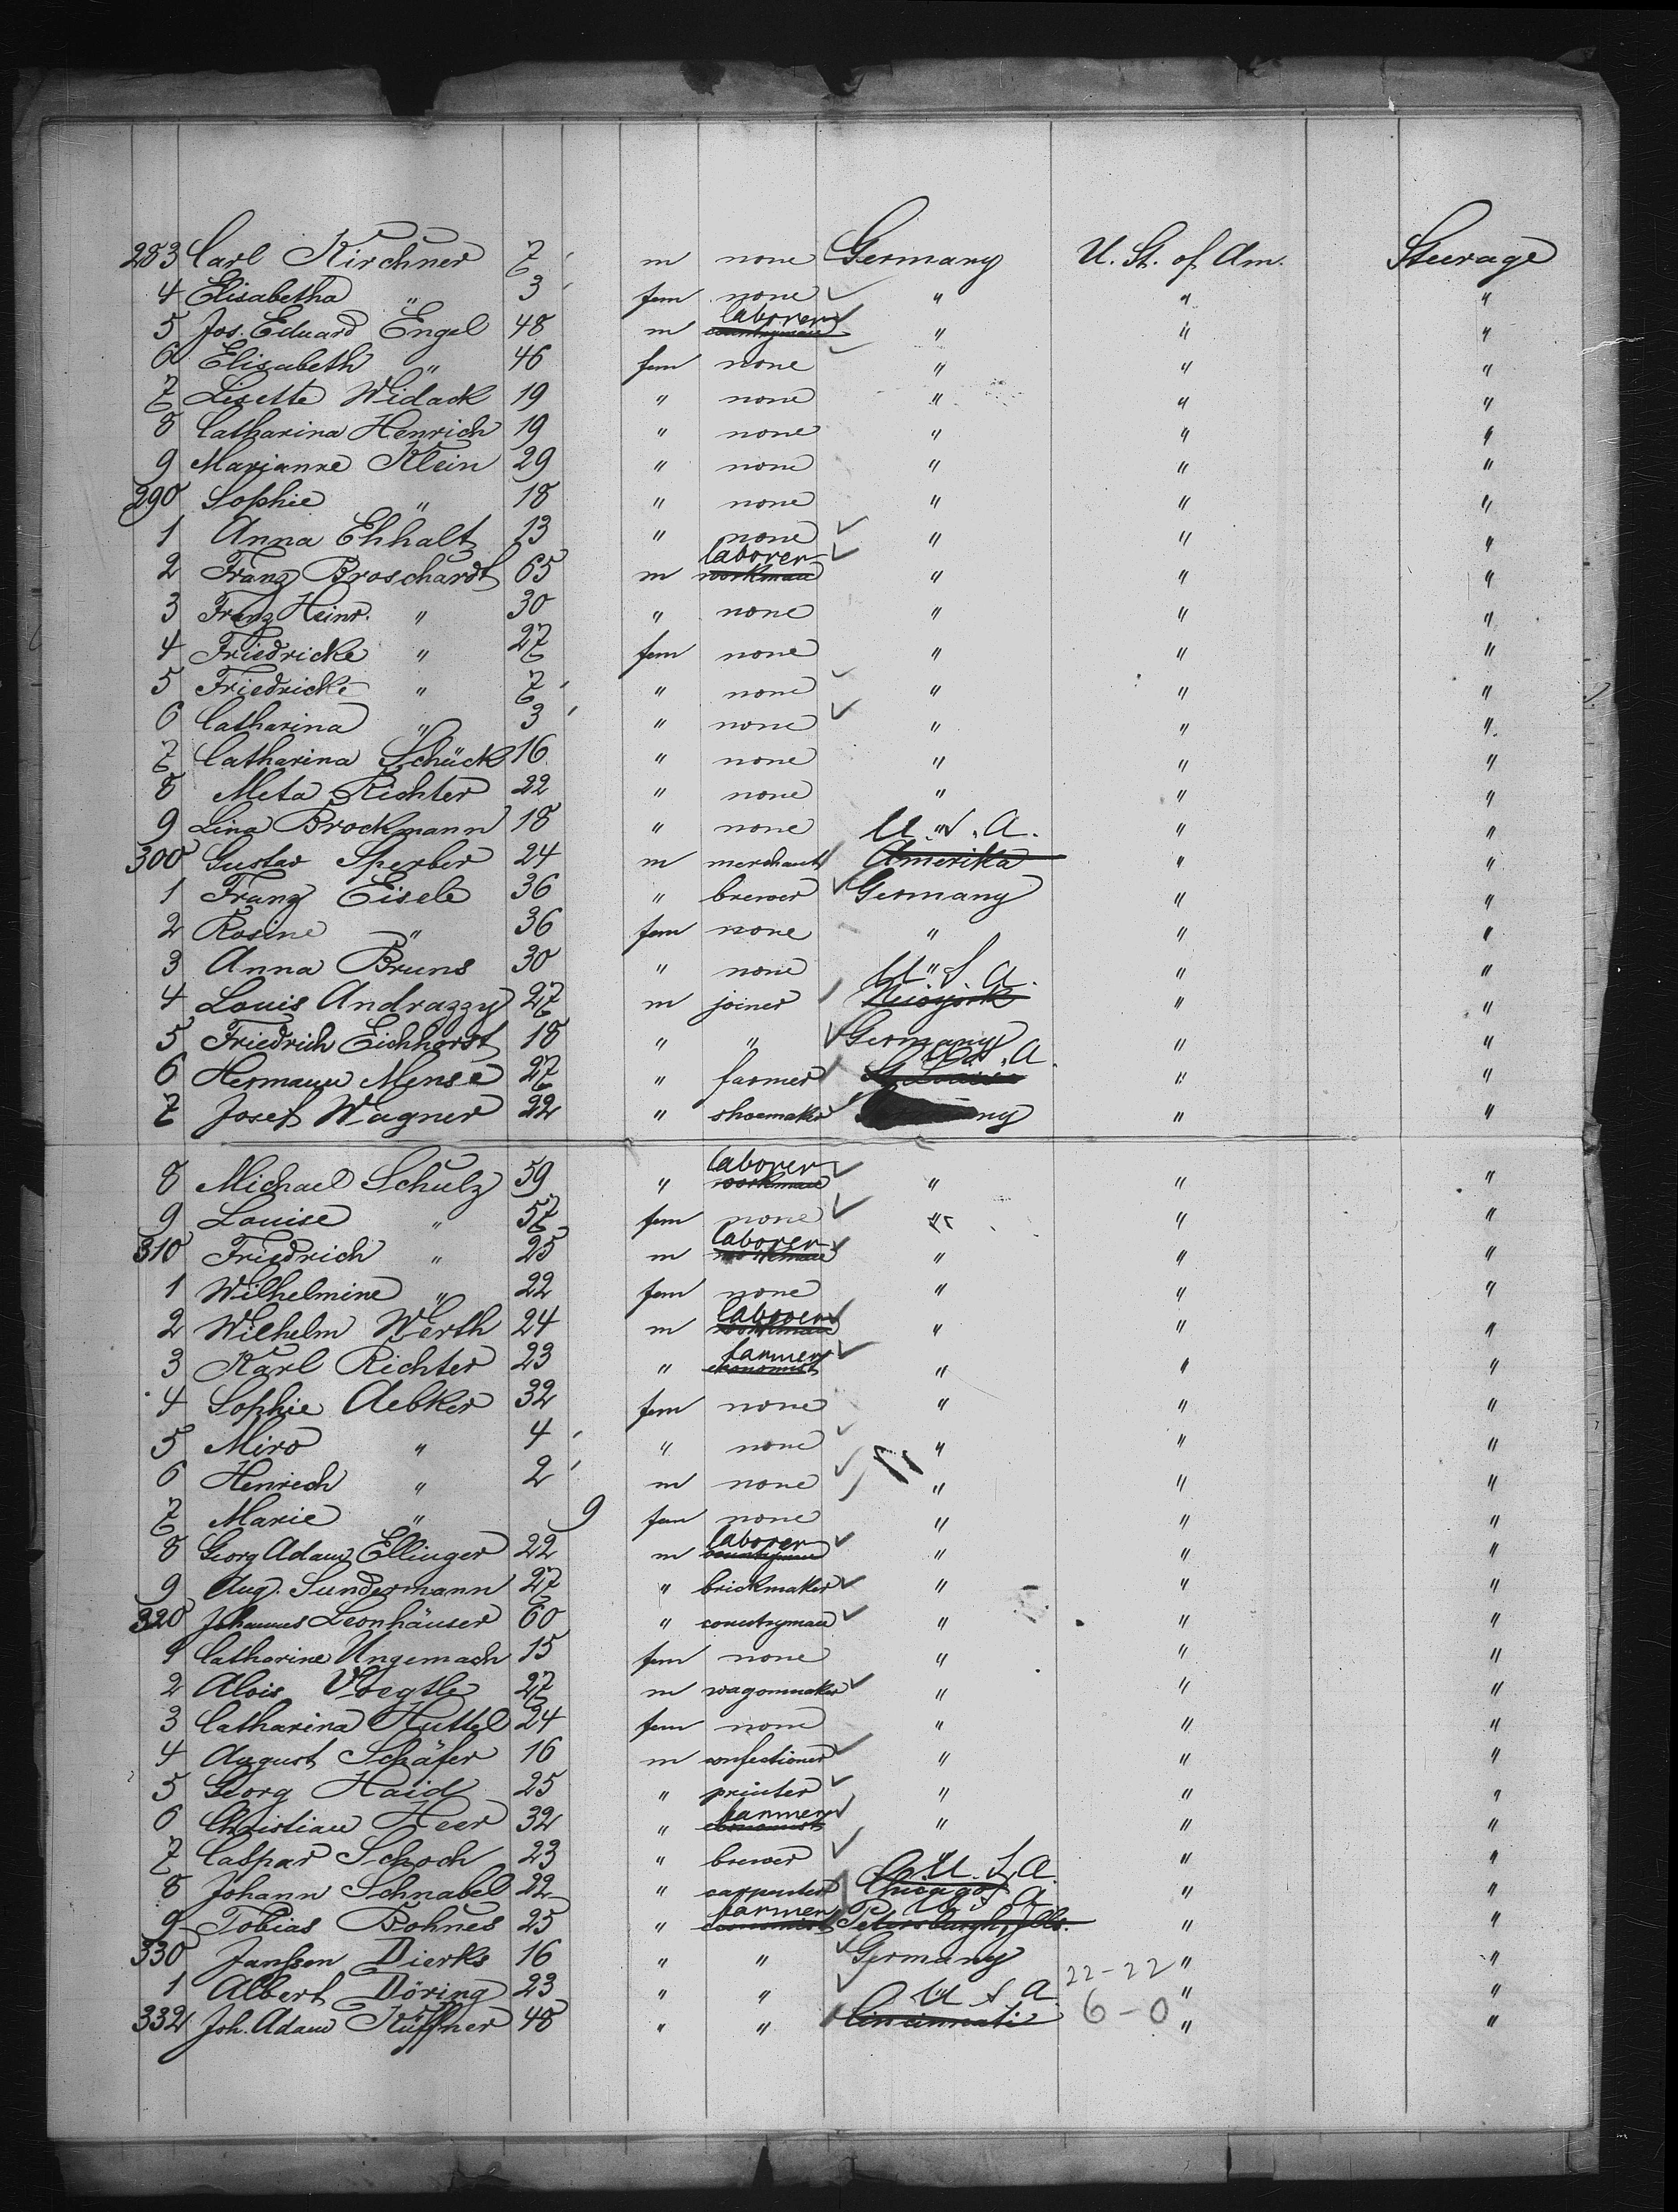 283 Carl Kirchner 7 m none Germany U. St. of Am. Steerage
4 Elisabetha " 3 fem none " " "
5 Jos. Eduard Engel 48 m laborer countryman " " "
6 Elisabeth " 46 fem none " " "
7 Lisette Widack 19 " none " " "
8 Catharina Henrich 19 " none " " "
9 Marianne Klein 29 " none " " "
290 Sophie " 18 " none " " "
1 Anna Ehhalt 23 " none " " "
2 Franz Broschardt 65 m laborer workman " " "
3 Franz Heinr. " 30 " none " " "
4 Friedricke " 27 fem none " " "
5 Friedricke " 7 " none " " "
6 Catharina " 3 " none " " "
7 Catharina Schück 16 " none " " "
8 Meta Richter 22 " none " " "
9 Lina Brockmann 18 " none " " "
300 Gustav Sperber 24 m merchant U.S.A. Amerika " "
1 Franz Eisele 36 " brewer Germany " "
2 Rosine " 36 fem none " " "
3 Anna Bruns 30 " none " " "
4 Louis Andrazzy 27 m joiner U.S.A. Newyork " "
5 Friedrich Eichhorst 18 " " Germany " "
6 Hermann Mense 27 " farmer U.S.A. St. Louis " "
7 Josef Wagner 22 " shoemaker Germany " "
8 Michael Schulz 59 " laborer workman " " "
9 Louise " 57 fem none " " "
310 Friedrich " 25 m laborer workman " " "
1 Wilhelmine " 22 fem none " " "
2 Wilhelm Werth 24 m laborer workman " " "
3 Karl Richter 23 " farmer economist " " "
4 Sophie Aebker 32 fem none " " "
5 Miro " 4 " none " " "
6 Henrich " 2 m none " " "
7 Marie " 9 fem none " " "
8 Georg Adam Ellinger 22 m laborer countryman " " "
9 Aug. Sundermann 27 " brickmaker " " "
320 Johannes Leonhäuser 60 " countryman " " "
1 Catharine Ungemach 15 fem none " " "
2 Alois Voegtle 27 m wagonmaker " " "
3 Catharina Huttel 24 fem none " " "
4 August Schäfer 16 m confectioner " " "
5 Georg Haid 25 " printer " " "
6 Christian Heer 32 " farmer economist " " "
7 Caspar Schoch 23 " brewer " " "
8 Johann Schnabel 22 " carpenter U.S.A. Chicago " "
9 Tobias Bohnes 25 " farmer economist U S A Petersburgh, Ills. " "
330 Janssen Dierks 16 " " Germany " "
1 Albert Döring 23 " " " 22-22 " "
332 Joh. Adam Küffner 48 " " U S A Cincinnati 6-0 " "